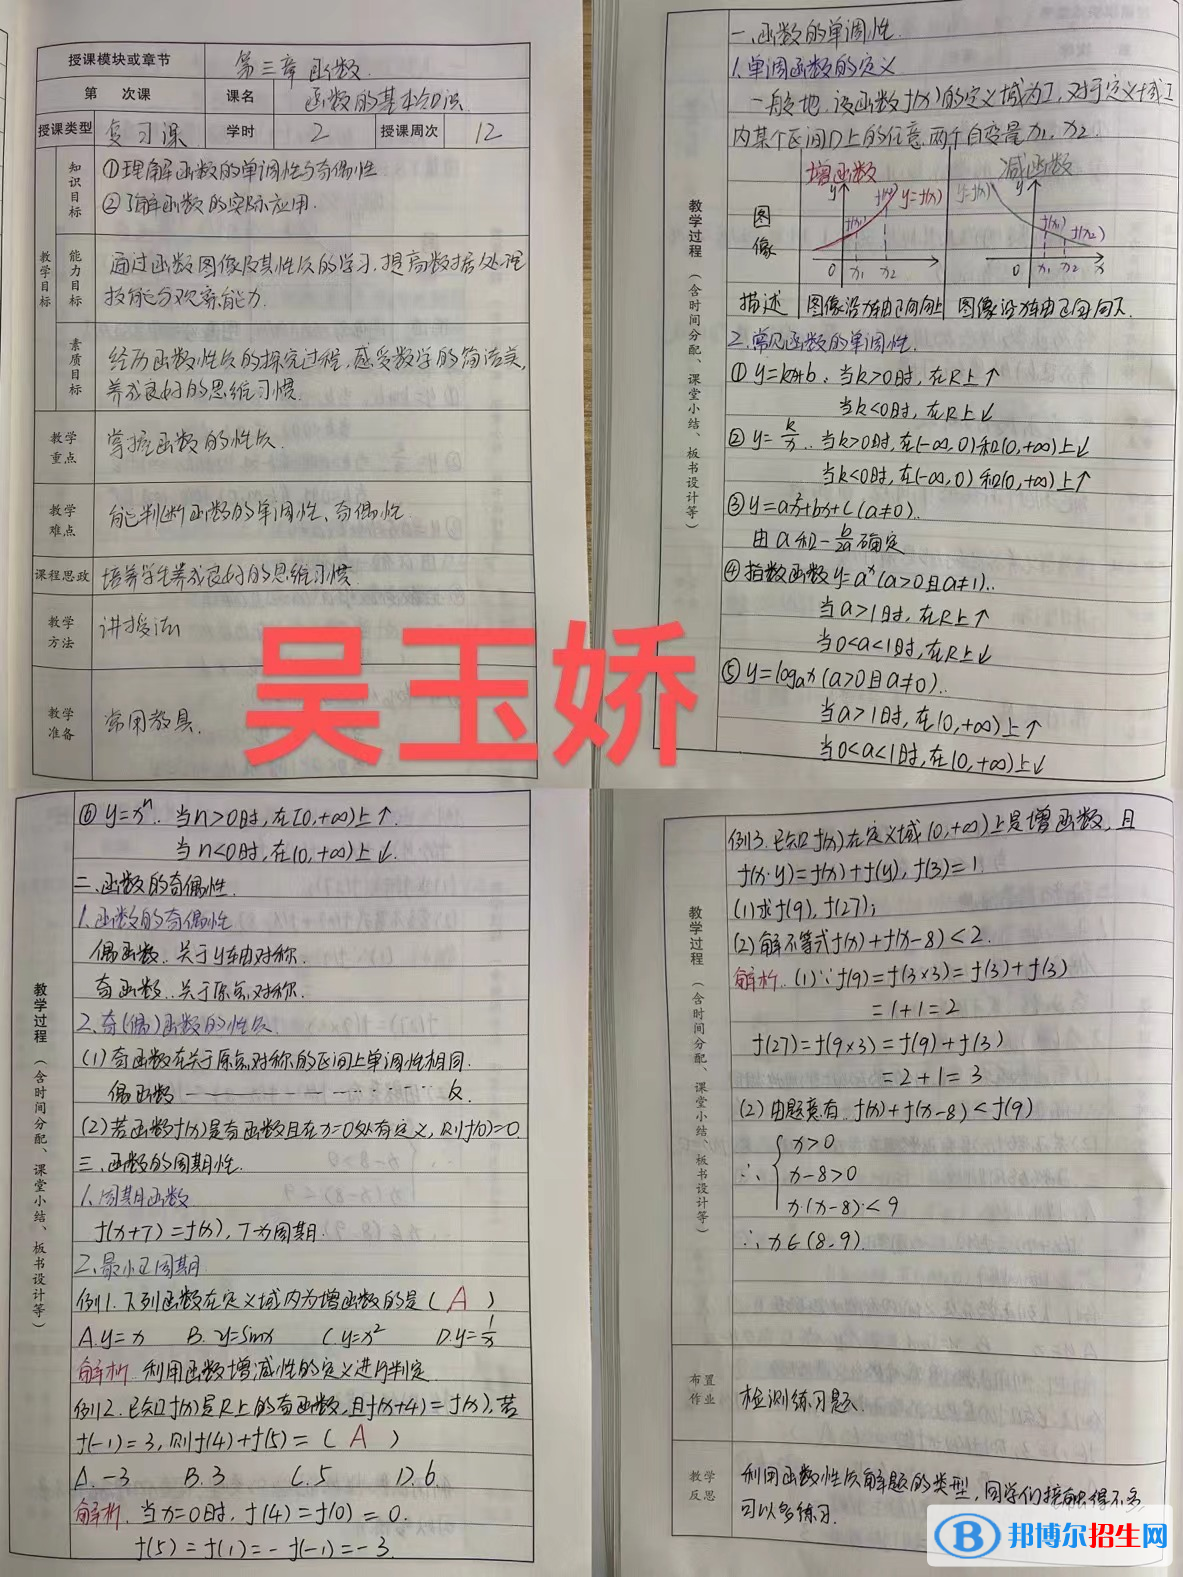 授课模块或章节 第三章 函数.
第 次课 课名 函数的基本知识
授课类型 复习课 学时 2 授课周次 12
教学目标
知识目标
①理解函数的单调性与奇偶性
②了解函数的实际应用.
能力目标
通过函数图像及其性质的学习,提高数据处理
技能与观察能力.
素质目标
经历函数性质的探究过程,感受数学的简洁美,
养成良好的思维习惯.
教学重点 掌握函数的性质.
教学难点 能判断函数的单调性、奇偶性.
课程思政 培养学生养成良好的思维习惯.
教学方法 讲授法
教学准备 常用教具.
吴玉娇
教学过程(含时间分配、课堂小结、板书设计等)
一、函数的单调性.
1.单调函数的定义
一般地,设函数f(x)的定义域为I,对于定义域I
内某个区间D上的任意两个自变量x₁、x₂.
增函数 减函数
图像
y f(x₂) y=f(x) f(x₁) 0 x₁ x₂
y=f(x) y f(x₁) f(x₂) 0 x₁ x₂ x
描述 图像沿x轴正向向上 图像沿x轴正向向下.
2.常见函数的单调性.
①y=kx+b、当k>0时,在R上↑
当k<0时,在R上↓
②y=k/x、当k>0时,在(-∞,0)和(0,+∞)上↓
当k<0时,在(-∞,0)和(0,+∞)上↑
③y=ax²+bx+c(a≠0).
由a和-b/2a确定
④指数函数y=aˣ(a>0且a≠1).
当a>1时,在R上↑
当0<a<1时,在R上↓
⑤y=logₐx(a>0且a≠0).
当a>1时,在(0,+∞)上↑
当0<a<1时,在(0,+∞)上↓
⑥y=xⁿ、当n>0时,在[0,+∞)上↑.
当n<0时,在(0,+∞)上↓.
二、函数的奇偶性.
教学过程(含时间分配、课堂小结、板书设计等)
1.函数的奇偶性
偶函数:关于y轴对称.
奇函数:关于原点对称.
2.奇(偶)函数的性质
(1)奇函数在关于原点对称的区间上单调性相同.
偶函数 反.
(2)若函数f(x)是奇函数且在x=0处有定义,则f(0)=0
三、函数的周期性.
1.周期函数
f(x+T)=f(x),T为周期.
2.最小正周期
例1.下列函数在定义域内为增函数的是( A )
A.y=x B.y=sinx C.y=x² D.y=1/x
解析.利用函数增减性的定义进行判定.
例2.已知f(x)是R上的奇函数,且f(x+4)=f(x),若
f(-1)=3,则f(4)+f(5)=( A )
A.-3 B.3 C.5 D.6.
解析.当x=0时,f(4)=f(0)=0.
f(5)=f(1)=-f(-1)=-3.
例3.已知f(x)在定义域(0,+∞)上是增函数,且
f(x·y)=f(x)+f(y),f(3)=1
(1)求f(9),f(27);
(2)解不等式f(x)+f(x-8)<2.
教学过程(含时间分配、课堂小结、板书设计等)
解析.(1)∵f(9)=f(3×3)=f(3)+f(3)
=1+1=2
f(27)=f(9×3)=f(9)+f(3)
=2+1=3
(2)由题意有.f(x)+f(x-8)<f(9)
x>0
∴ x-8>0
x·(x-8)<9
∴x∈(8,9).
布置作业 检测练习题.
教学反思
利用函数性质解题的类型,同学们接触得不多,
可以多练习.
B 邦博尔招生网